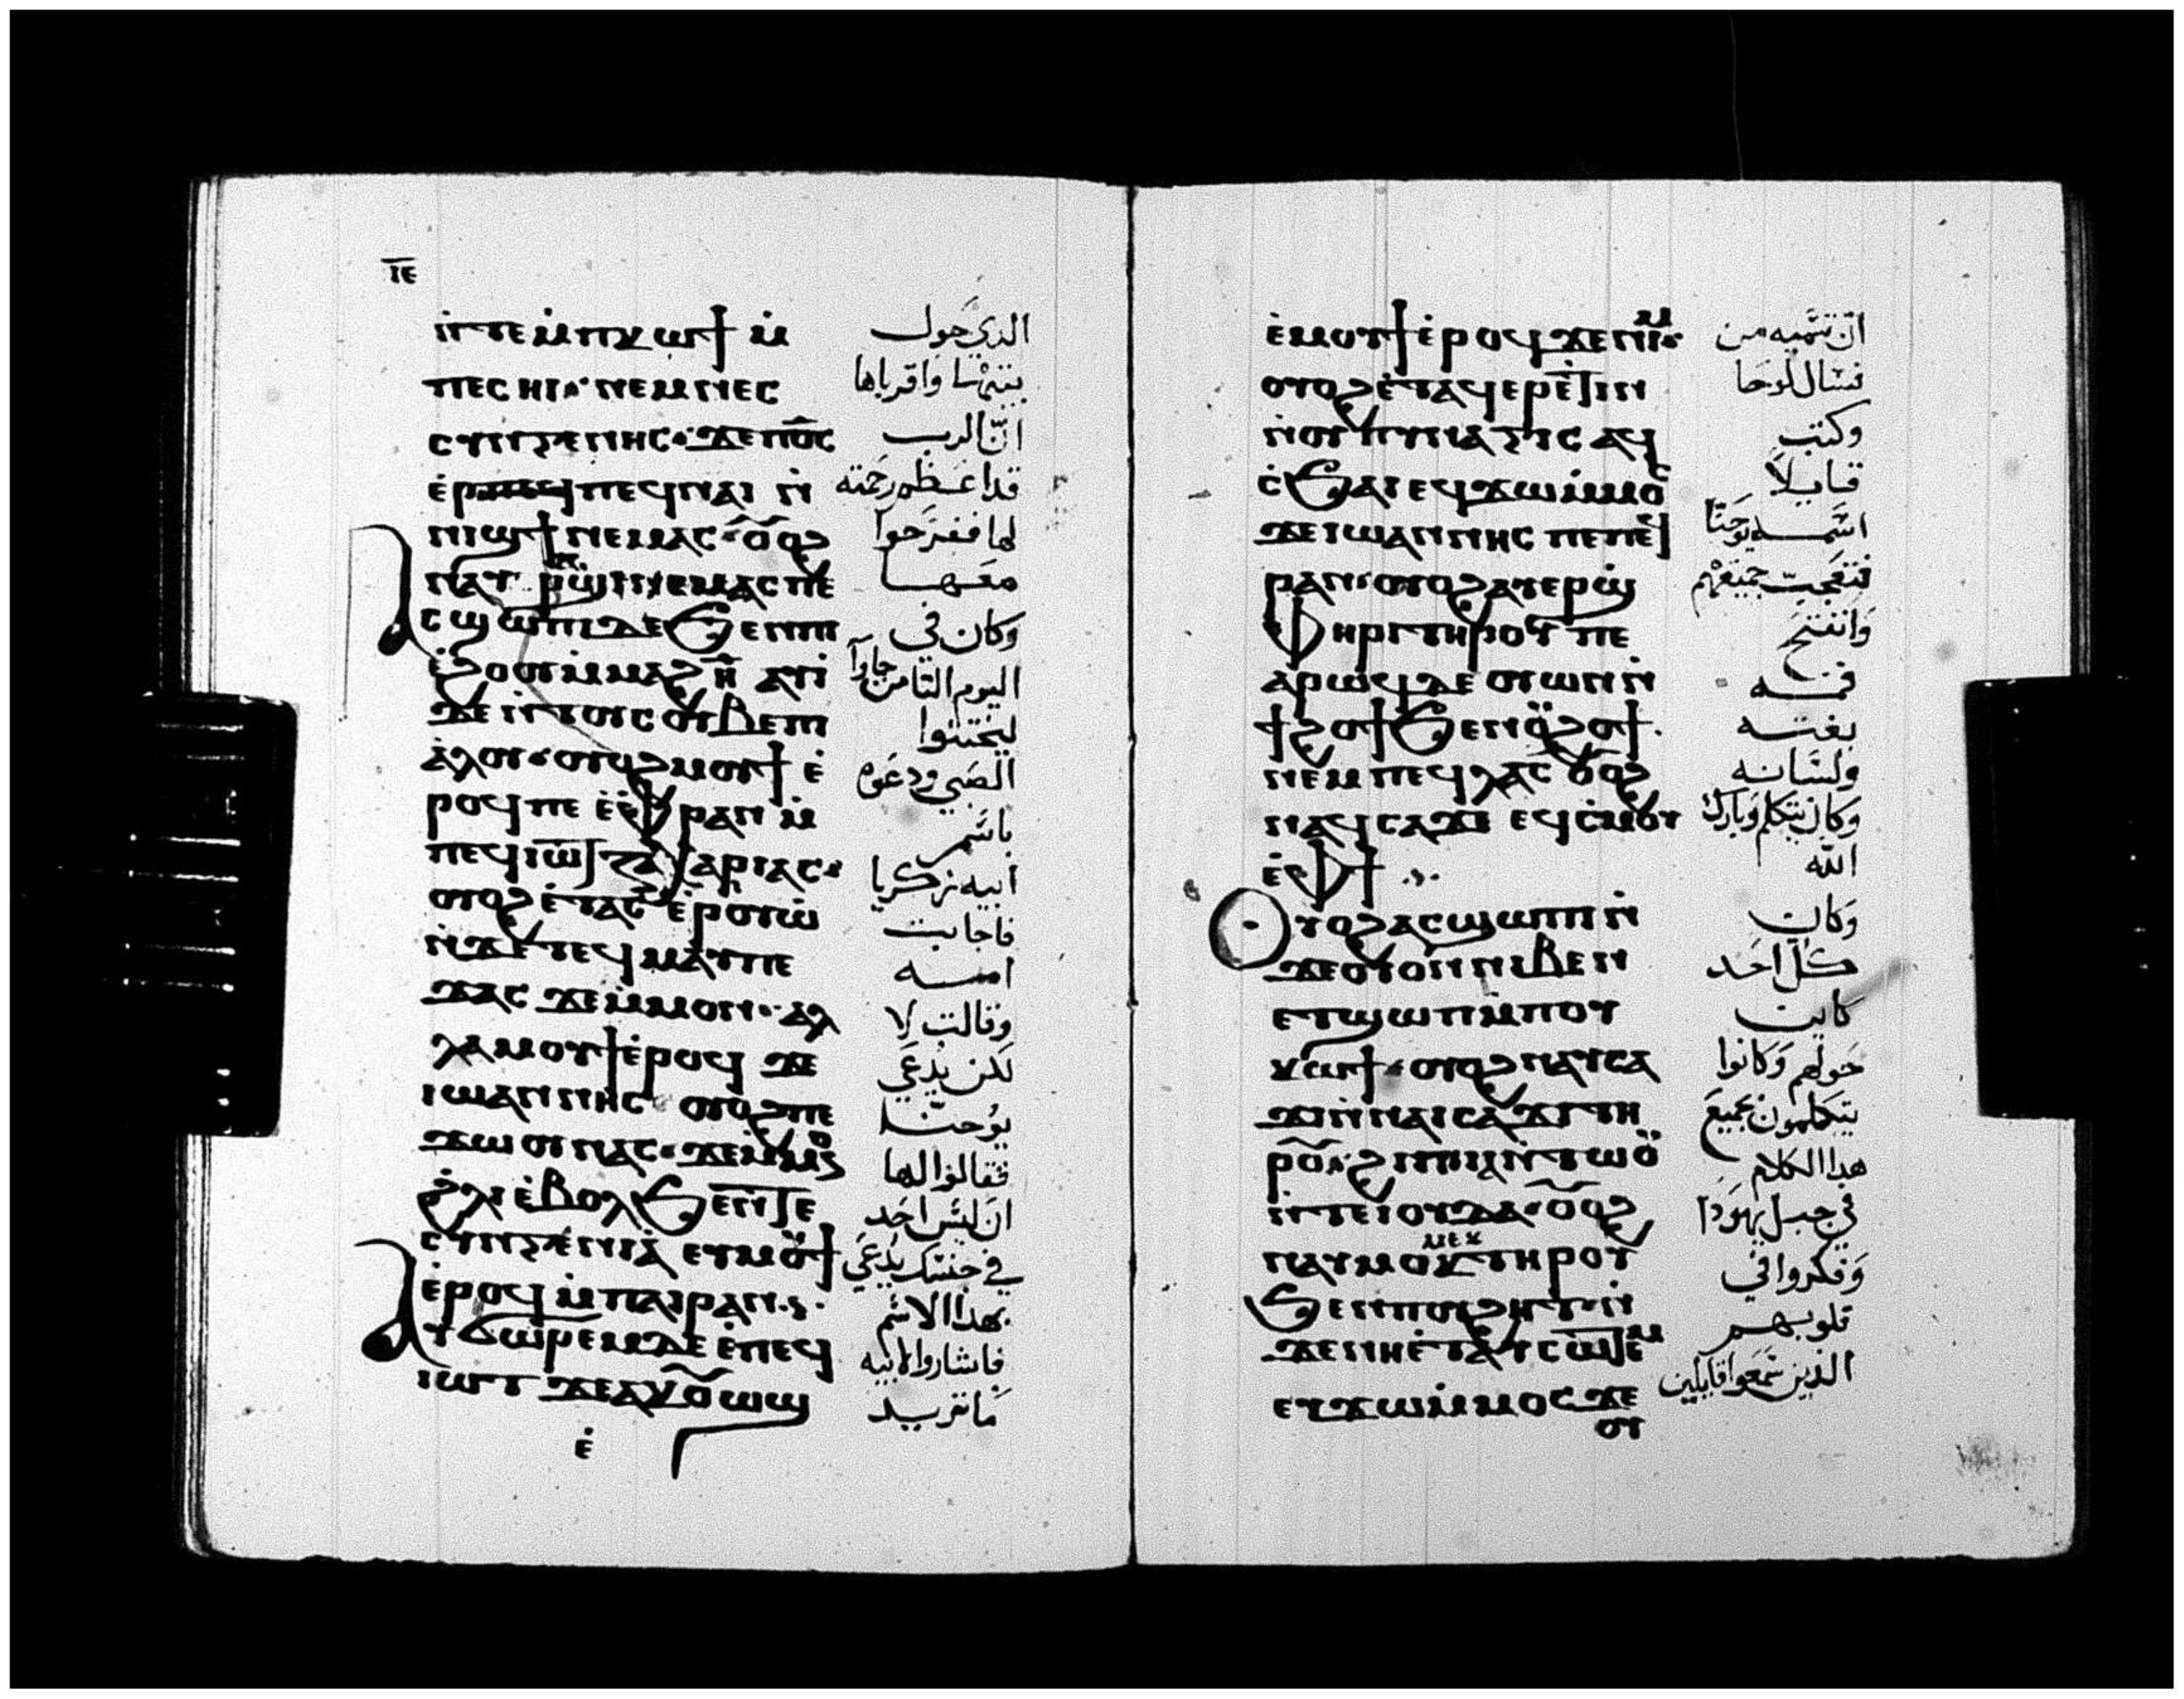 ⲓ̅ⲉ̅
ⲛ̀ⲧⲉⲙ̀ⲡⲕⲱϯ ⲙ̀
ⲡⲉⲥⲏⲓ· ⲛⲉⲙⲛⲉⲥ
ⲥⲩⲛⲅⲉⲛⲏⲥ· ϫⲉⲡⲟ̅ⲥ̅
ⲡⲉϥⲛⲁⲓ ⲛ̀
ⲛⲓϣϯ ⲛⲉⲙⲁⲥ· ⲟ̅ⲟϩ
ⲛⲁⲩ ⲣⲁϣⲓ ⲛⲉⲙⲁⲥ ⲡⲉ
Ⲁⲥϣⲱⲡⲓ ⲇⲉ ϧⲉⲛⲡⲓ
ⲉ̀ϩⲟⲟⲩ ⲙ̀ⲙⲁϩ ⲏ̅ ⲁⲩⲓ̀
ϫⲉ ⲛ̀ⲧⲟⲩⲥⲟⲩⲃⲉⲡⲓ
ⲁ̀ⲗⲟⲩ· ⲟⲩⲟϩⲙⲟⲩϯ ⲉ̀
ⲣⲟϥ ⲡⲉ ⲉ̀ⲫⲣⲁⲛ ⲙ̀
ⲡⲉϥⲓⲱⲧ ⲍⲁⲭⲁⲣⲓⲁⲥ·
ⲟⲩⲟϩ ⲉ̀ⲧⲁⲥⲉ̀ⲣⲟⲩⲱ̀
ⲛ̀ϫⲉ ⲧⲉϥⲙⲁⲩ ⲡⲉ
ϫⲁⲥ ϫⲉⲙ̀ⲙⲟⲛ· ⲁⲗ
ⲗⲁ ⲙⲟⲩϯ ⲉ̀ⲣⲟϥ ϫⲉ
ⲓⲱⲁⲛⲛⲏⲥ ⲟⲩⲟϩ ⲡⲉ
ϫⲱⲟⲩ ⲛⲁⲥ· ϫⲉⲙ̀ⲙⲟⲛ
ϩ̀ⲗⲓ ⲉ̀ⲃⲟⲗ ϧⲉⲛⲧⲉ
ⲥⲩⲛⲅⲉⲛⲓⲁ̀ ⲉⲩⲙⲟⲩϯ
ⲉ̀ⲣⲟϥ ⲙ̀ⲡⲁⲓⲣⲁⲛ·
Ⲁⲩϭⲱⲣⲉⲙ ⲇⲉ ⲉ̀ⲡⲉϥ
ⲓⲱⲧ ϫⲉⲁⲕⲟ̅ⲱϣ
ⲉ̀
الذي حول
بيتها واقرباها
ان الرب
قد اعظم رحمته
لها ففرحوا
معها
وكان في
اليوم الثامن جاوا
ليختنوا
الصبي ودعوه
باسم
ابيه زكريا
فاجابت
امه
وقالت لا
لكن يدعي
يوحنا
فقالوا لها
ان ليس احد
في جنسك يدعي
بهذا الاسم
فاشاروا لابيه
ما تريد
ⲉ̀ⲙⲟⲩϯ ⲉ̀ⲣⲟϥ ϫⲉⲛⲓⲙ·
ⲟⲩⲟϩ ⲉ̀ⲧⲁϥⲉⲣⲉ̀ⲧⲓⲛ
ⲛ̀ⲟⲩⲡⲩⲛⲁⲅⲓⲥ ⲁϥ
ⲥ̀ϧⲁⲓ ⲉϥϫⲱⲙ̀ⲙⲟⲥ
ϫⲉ ⲓⲱⲁⲛⲛⲏⲥ ⲡⲉ ⲡⲉϥ
ⲣⲁⲛ· ⲟⲩⲟϩ ⲁⲩⲉⲣϣ̀
ⲫⲏⲣⲓ ⲧⲏⲣⲟⲩ ⲡⲉ
ⲁⲣⲱϥ ⲇⲉ ⲟⲩⲱⲛ ⲛ̀
ϯϩⲟϯ ϧⲉⲛⲟⲩϩⲟϯ·
ⲛⲉⲙ ⲡⲉϥⲗⲁⲥ ⲟ̅ⲟϩ
ⲛⲁϥⲥⲁϫⲓ ⲉϥⲥ̀ⲙⲟⲩ
ⲉ̀ⲫϯ
Ⲟⲩⲟϩ ⲁⲥϣⲱⲡⲓ ⲛ̀
ϫⲉⲟⲩⲟⲛⲛⲓⲃⲉⲛ
ⲉⲧϣⲱⲡ ⲙ̀ⲡⲟⲩ
ⲕⲱϯ· ⲟⲩⲟϩ ⲛⲁⲩⲥⲁ
ϫⲓ ⲛ̀ⲛⲁⲓⲥⲁϫⲓ ⲧⲏ
ⲣⲟⲩ· ϩⲓⲡⲓⲁⲛⲧⲱⲟⲩ
ⲛ̀ⲧⲉ ⲓⲟⲩⲇⲁ· ⲟ̅ⲟϩ
ⲛⲁⲩⲙⲟⲕⲙⲉⲕ ⲧⲏⲣⲟⲩ
ϧⲉⲛⲡⲟⲩϩⲏⲧ ⲛ̀
ϫⲉⲛⲏⲉ̀ⲧⲁⲩⲥⲱⲧⲉⲙ
ⲉⲩϫⲱⲙ̀ⲙⲟⲥ ϫⲉ
ⲟⲩ
ان تسميه من
فسال لوحا
وكتب
قايلا
اسمه يوحنا
فتعجب جميعهم
وانفتح
فمه
بغته
ولسانه
وكان يتكلم وبارك
الله
وكان
كل احد
كاين
حولهم وكانوا
يتكلمون بجميع
هذا الكلام
في جبل يهودا
وفكروا في
قلوبهم
الذين سمعوا قايلين